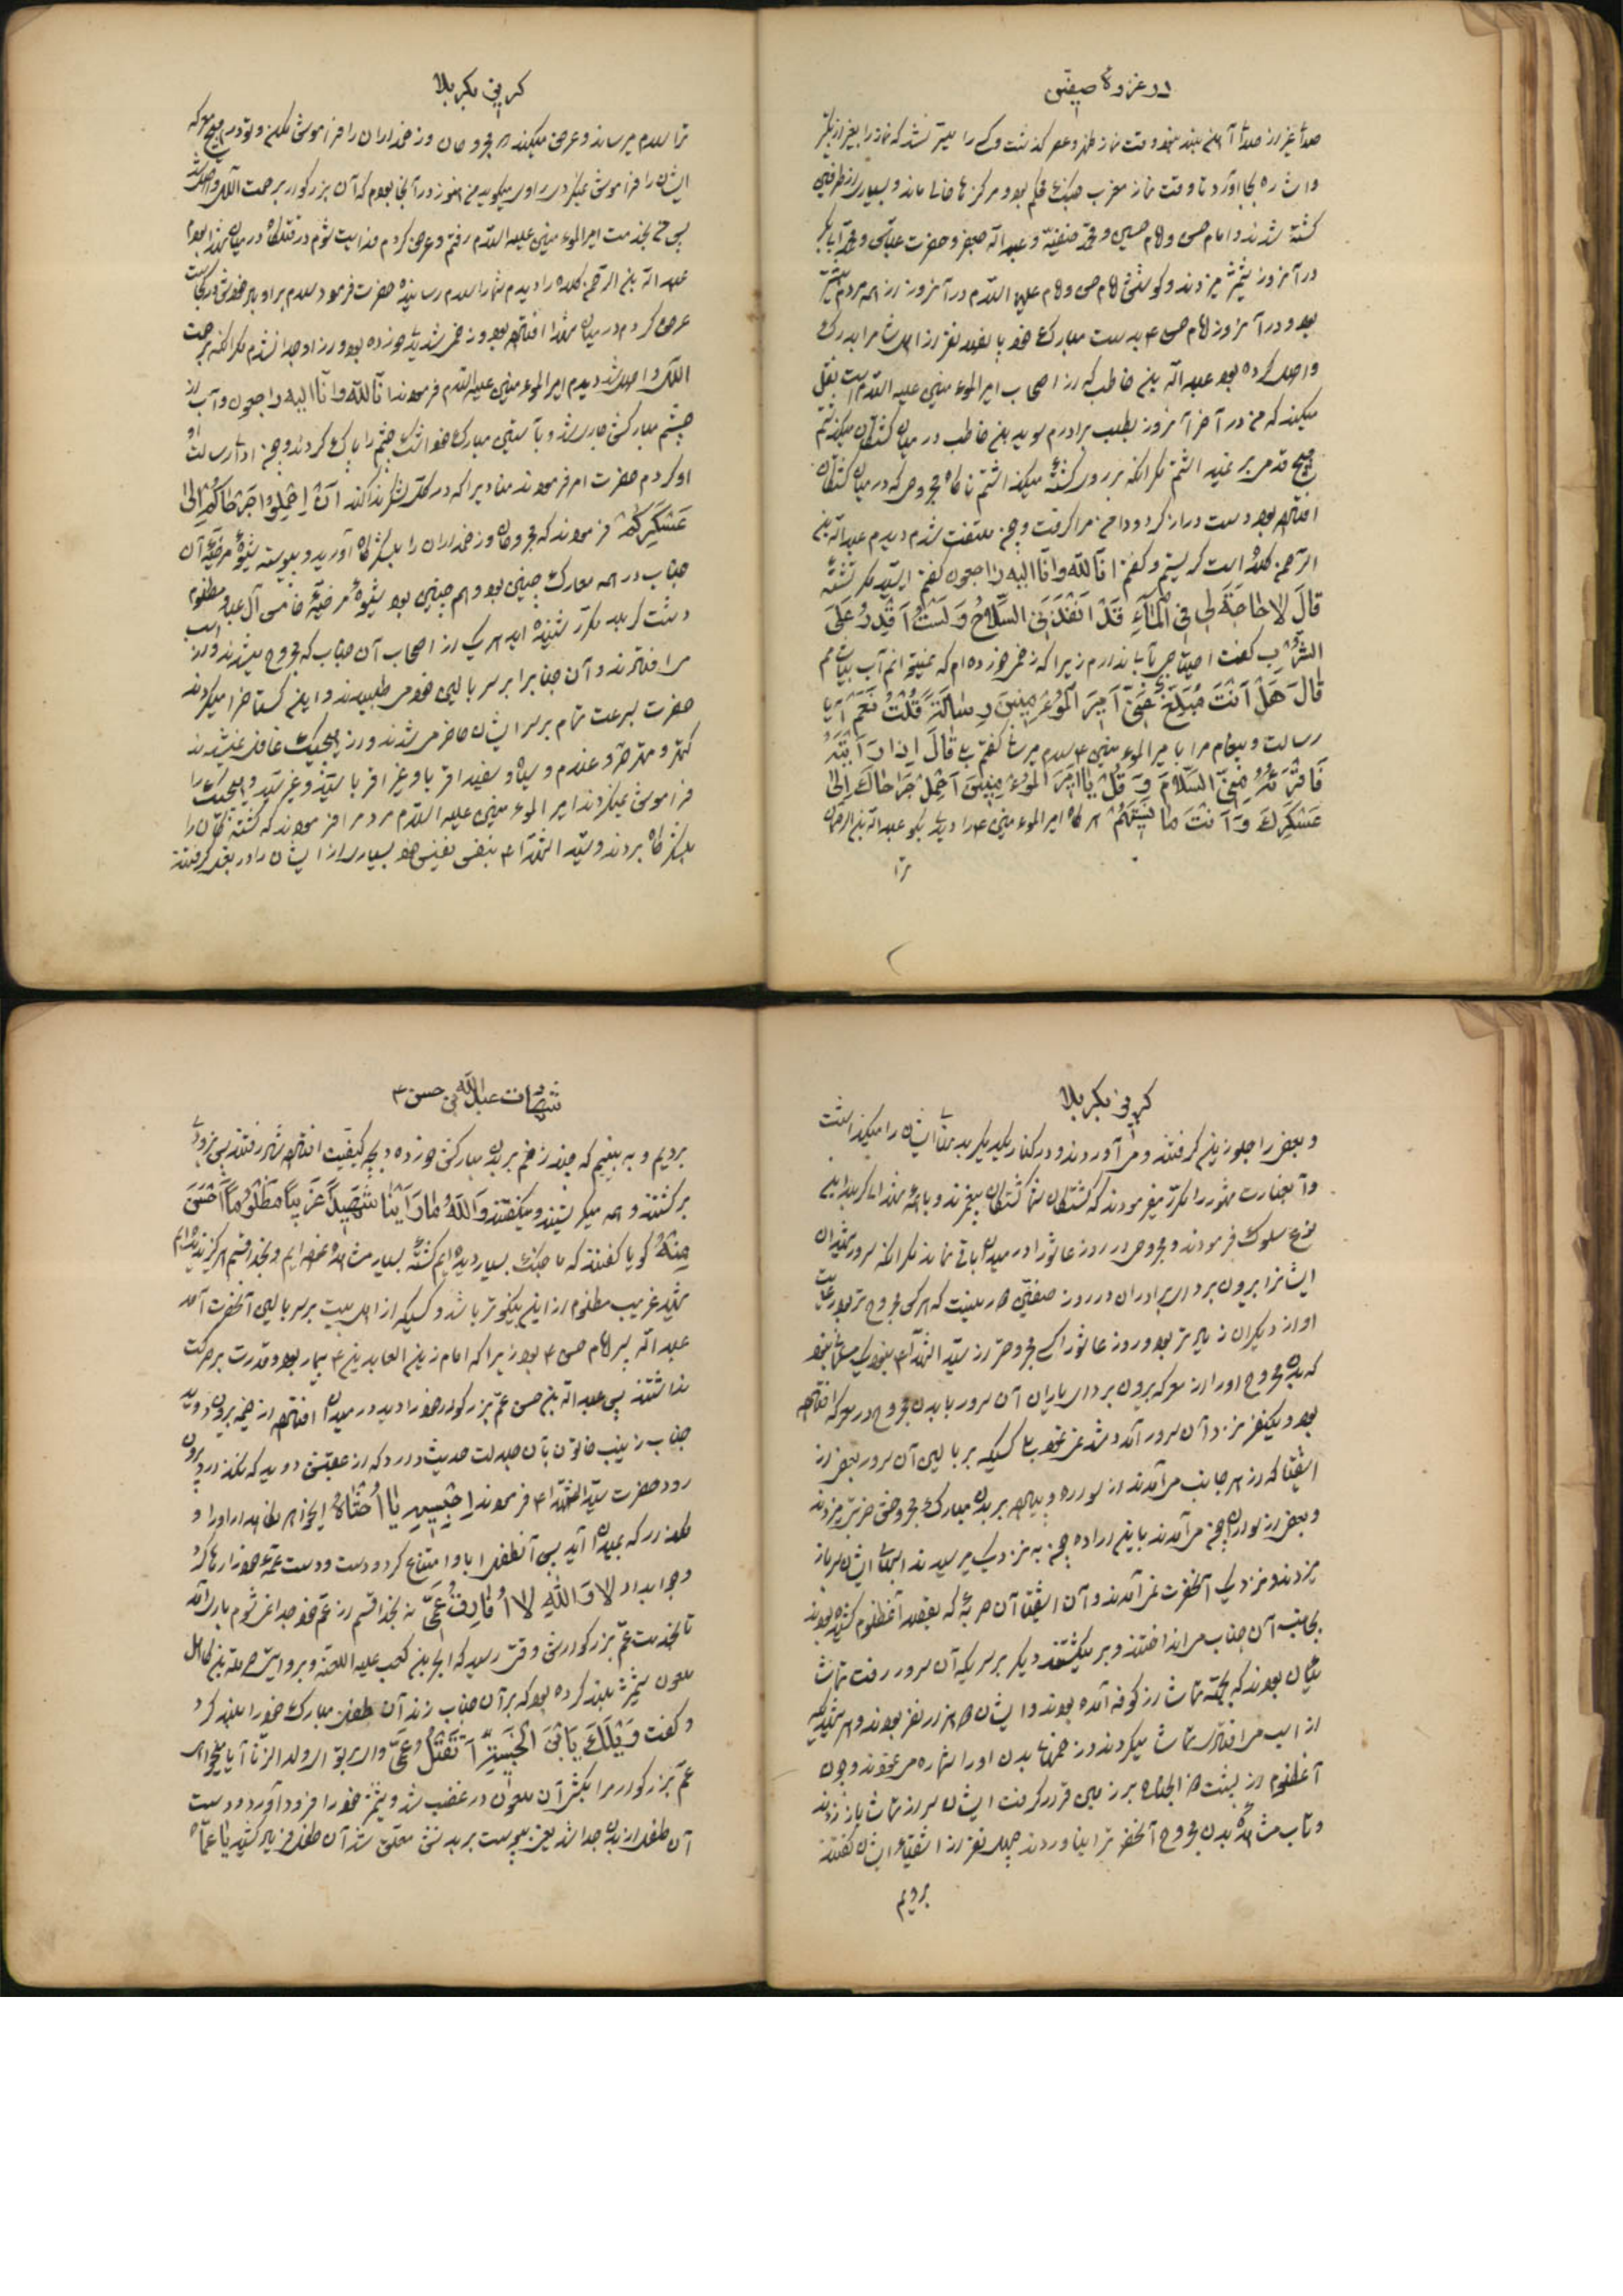 در غزوهٔ صفین
صدائی غیر از صدای آهن بلند نبود وقت نماز ظهر و عصر گذشت و کسی را میسر نشد که نماز را بغیر از تکبیر
و اشاره بجا آورد تا وقت نماز مغرب جنگ قایم بود و مرکزها خالی ماند و بسیاری از طرفین
کشته شدند و امام حسن و امام حسین و محمد حنفیه و عبدالله جعفر و حضرت عباس و محمد ابابکر
در آنروز شمشیر میزدند و کوشش امام حسن و امام علیه السلام در آنروز از همه مردم بیشتر
بود و در آنروز امام حسن ۴ بدست مبارک خود نفر از اهل شام را بدرک
واصل کرده بود عبدالله بن خاطب که از اصحاب امیرالمؤمنین علیه السلام است نقل
میکند که من در آخر آنروز بطلب برادرم سوید بن خاطب در میان کشتگان میگذشتم
هیچ قدمی بر نمیداشتم مگر آنکه بر روی کشته میگذاشتم ناگاه مجروحی که در میان کشتگان
افتاده بود دست دراز کرد و دامن مرا گرفت چون ملتفت شدم دیدم عبدالله بن
الرحمن کلده است گریستم و گفتم انا لله وانا الیه راجعون گفتم ایسید مگر تشنهٔ
قالَ لا حاجَةَ لی فِی الْمآءِ قَدْ اَنْفَذَنِیَ السِّلاحُ وَ لَسْتُ اَقْدِرُ عَلَی
الشُّرْبِ گفت احتیاجی بآب ندارم زیرا که زخمی خورده‌ام که نمیتوانم آب بیاشامم
قالَ هَلْ اَنْتَ مُبَلِّغٌ عَنّی اَمیرَ الْمُؤْمِنینَ رِسالَتَهُ قُلْتُ نَعَمْ آیا
رسالت و پیغام مرا بامیرالمؤمنین ۴ سلام میرسانی گفتم بلی قالَ اِذا رَاَیْتَهُ
فَاقْرَئْهُ مِنّی السَّلامَ وَ قُلْ یا اَمیرَ الْمُؤْمِنینَ اَحْمِلْ جَرْحاکَ اِلی
عَسْکَرِکَ وَ اَنْتَ ما نَسِیتَهُمْ هرگاه امیرالمؤمنین ۴ را دیدی بگو عبدالله بن الرحمن
ترا
گریز بکربلا
ترا سلام میرساند و عرض میکند که مجروحان و زخمداران را فراموش مکن و تو در هیچ معرکه
ایشان را فراموش نمیکردی راوی میگوید من هنوز در آنجا بودم که آن بزرگوار برحمت الهی واصل شد
پس من بخدمت امیرالمؤمنین علیه السلام رفتم و عرض کردم فدایت شوم در قتلگاه در میان شهدا بودم
عبدالله بن الرحمن کلده را دیدم شما را سلام رسانیده حضرت فرمود سلام بر او باد خودش در کجاست
عرض کردم در میان شهدا افتاده بود و زخمی شدید خورده بود و از او جدا نشدم مگر آنکه برحمت
الهی واصل شد دیدم امیرالمؤمنین علیه السلام فرمودند انا لله وانا الیه راجعون و آب از
چشم مبارکش جاری شد و باستین مبارک خود اشک چشم را پاک کردند و چون ادای رسالت
او کردم حضرت امر فرمودند منادیرا که در کل لشکر ندا کند اَنْ اِحْمِلُوا جَرْحاکُمْ اِلی
عَسْکَرِکُمْ فرمودند که مجروحان و زخمداران را بلشکرگاه آورید و پیوسته شیوهٔ مرضیهٔ آن
جناب در همه معارک چنین بود و هم چنین بود شیوهٔ مرضیهٔ خامس آل عبا و مظلوم
دشت کربلا مکرر شنیدهٔ اید هر یک از اصحاب آن جناب که مجروح میشدند و از اسب
می افتادند و آن جنابرا بر سر بالین خود می طلبیدند و این گستاخی را میکردند
حضرت بسرعت تمام بر سر ایشان حاضر می شدند و از هیچیک غافل نمیشدند
کهتر و مهتر و غلام و سیاه و سفید اقربا و غیر اقربا سید و غیر سید و هیچیک را
فراموش نمیکردند امیرالمؤمنین علیه السلام مردم را فرمودند که کشتگان را
بلشکرگاه بردند و سید الشهداء ۴ بنفس نفیس خود بسیاری از ایشان را در بغل گرفتند
گریز بکربلا
و بعضی را جلو زین گرفتند و می آوردند و در کنار یکدیگر بدنهای ایشان را میگذاشت
و آن عبارت مشهور را مکرر میفرمودند که کشتگان ما کشتگان پیغمبرند و با همهٔ شهدای کربلا این
نوع سلوک فرمودند و مجروحی در روز عاشورا در میدان باقی نماند مگر آنکه سرور شهیدان
ایشانرا بیرون برد ای برادران در روز صفین هر بینت که هر کس مجروح تر بود رعایت
او از دیگران زیادتر بود و روز عاشورا کسی مجروح‌تر از سید الشهداء ۴ نبود یک مسلمان نبود
که بدن مجروح او را از معرکه بیرون برد ای یاران آن سرور با بدن مجروح در معرکه افتاده
بود و یکنفر نزد آن سرور آمد و شد نمی نمود بلی کسیکه بر بالین آن سرور بعضی از
اشقیا که از هر جانب می آمدند از سواره و پیاده بر بدن مبارک مجروحش ضربتی میزدند
و بعضی از سواران چون می آمدند باین اراده چون به نزدیک میرسیدند اسبان ایشان سر باز
میزدند و نزدیک آنحضرت نمی آمدند و آن اشقیا آن حربهٔ که بقصد آنمظلوم کشیده بودند
بجانب آن جناب می انداختند و بر میگشتند دیگر بر سر یکه آن سرور رفت تماشا
ئیان بودند که بجهة تماشا از کوفه آمده بودند و ایشان هزار نفر بودند و هر شهیدیکه
از اسب می افتاد تماشا میکردند و زخمهای بدن او را شماره می نمودند و چون
آنمظلوم از پشت ذوالجناح بر زمین قرار گرفت ایشان سر از تماشا باز زدند
و تاب مشاهدهٔ بدن مجروح آنحضرترا نیاوردند چهل نفر از اشقیای ایشان گفتند
برویم
شهادت عبدالله بن حسن ۴
برویم و به بینیم که چند زخم بر بدن مبارکش خورده و بچه کیفیت افتاده است رفتند پس بزودی
برگشتند و همه میگریستند و میگفتند وَاللهِ ما رَاَیْنا شَهیداً غَریباً مَظْلُوماً اَحْسَنَ
مِنْهُ گویا گفتند که ما جنگ بسیار دیده ایم کشتهٔ بسیار مشاهده نموده ایم و بخدا قسم هرگز ندیده ایم
شهید غریب مظلوم از این نیکوتر باشد و کسیکه از اهل بیت بر سر بالین آنحضرت آمد
عبدالله پسر امام حسن ۴ بود زیرا که امام زین العابدین ۴ بیمار بود و قدرت بر حرکت
نداشتند پس عبدالله بن حسن عم بزرگوار خود را دید در میدان افتاده از خیمه بیرون دوید
جناب زینب خاتون بآن جلالت حدیث دارد که از عقبش دوید که نگذارد بیرون
رود حضرت سید الشهداء ۴ فرمودند اِحْبِسیهِ یا اُخْتاهُ ایخواهر نگاهدار او را و
مگذار که بمیدان آید پس آنطفل ابا و امتناع کرد و دست و دست عمهٔ خود را رها کرد
و جوابداد لا وَاللهِ لا اُفارِقُ عَمّی نه بخدا قسم از عم خود جدا نمی شوم بازی آمد
تا بخدمت عم بزرگوارش وقتی رسید که ابجر بن کعب علیه اللعنه و بروایتی حرملة بن کاهل
ملعون شمشیر بلند کرده بود که بر آن جناب زند آن طفل مبارک خود را بلند کرد
و گفت وَیْلَکَ یَابْنَ الْخَبیثَةِ اَتَقْتُلُ عَمّی وای بر تو ای ولد الزنا آیا میخواهی
عم بزرگوار مرا بکشی آن ملعون در غضب شد و شمشیر خود را فرود آورد و دست
آن طفل از بدن جدا شد یعنی بپوست بر بدنش معلق شد آن طفل فریاد کشید یا عَمّاهُ